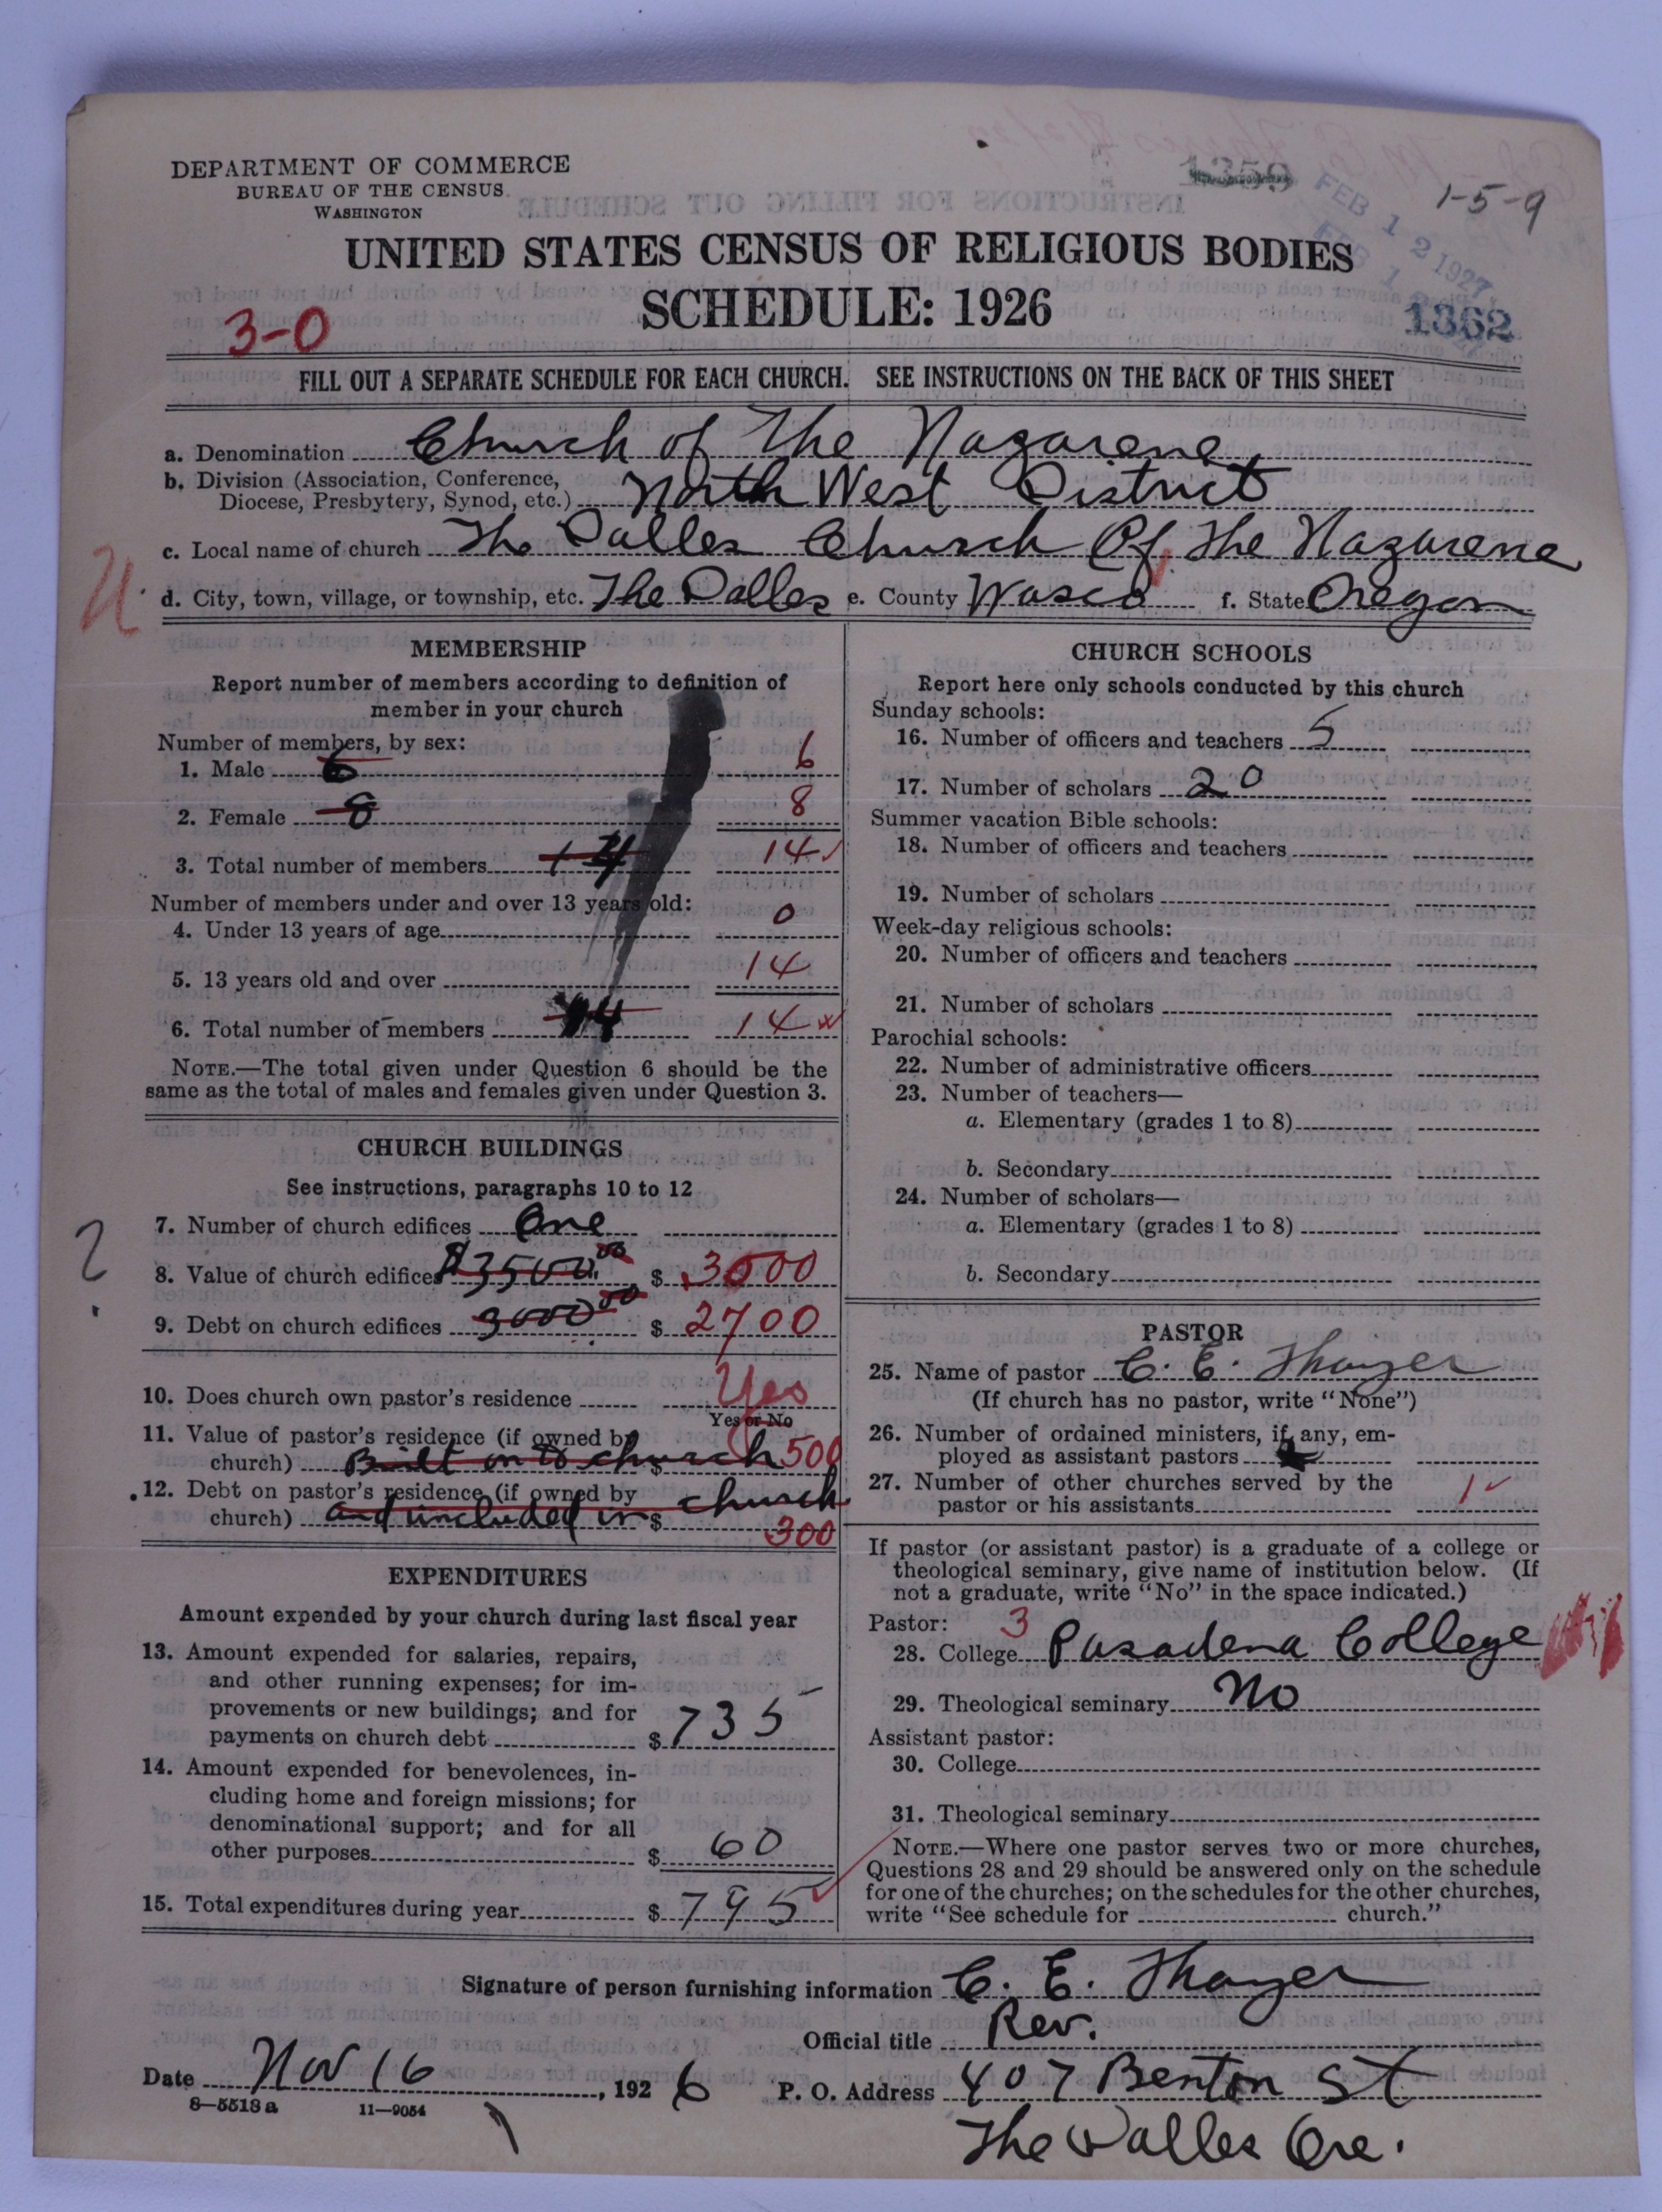 1359
FEB 12 1927
1-5-9
DEPARTMENT OF COMMERCE
BUREAU OF THE CENSUS
WASHINGTON
UNITED STATES CENSUS OF RELIGIOUS BODIES
SCHEDULE: 1926
3-0
1362
FILL OUT A SEPARATE SCHEDULE FOR EACH CHURCH. SEE INSTRUCTIONS ON THE BACK OF THIS SHEET
a. Denomination Church of The Nazarene
b. Division (Association, Conference,
Diocese, Presbytery, Synod, etc.) North West District
c. Local name of church The Dalles Church Of The Nazarene
d. City, town, village, or township, etc. The Dalles e. County Wasco f. State Oregon
MEMBERSHIP
Report number of members according to definition of
member in your church
Number of members, by sex:
1. Male 6 6
2. Female 8 8
3. Total number of members 14 14
Number of members under and over 13 years old:
4. Under 13 years of age 0
5. 13 years old and over 14
6. Total number of members 14 14
NOTE.—The total given under Question 6 should be the
same as the total of males and females given under Question 3.
CHURCH BUILDINGS
See instructions, paragraphs 10 to 12
7. Number of church edifices One
?
8. Value of church edifices $3500.00 $ 3000
9. Debt on church edifices 3000 00 $ 2700
10. Does church own pastor's residence Yes
Yes or No
11. Value of pastor's residence (if owned by
church) Built on to church $ 500
12. Debt on pastor's residence (if owned by
church) and included in church $ 300
EXPENDITURES
Amount expended by your church during last fiscal year
13. Amount expended for salaries, repairs,
and other running expenses; for im-
provements or new buildings; and for
payments on church debt $ 735
14. Amount expended for benevolences, in-
cluding home and foreign missions; for
denominational support; and for all
other purposes $ 60
15. Total expenditures during year $ 795
CHURCH SCHOOLS
Report here only schools conducted by this church
Sunday schools:
16. Number of officers and teachers 5
17. Number of scholars 20
Summer vacation Bible schools:
18. Number of officers and teachers
19. Number of scholars
Week-day religious schools:
20. Number of officers and teachers
21. Number of scholars
Parochial schools:
22. Number of administrative officers
23. Number of teachers—
a. Elementary (grades 1 to 8)
b. Secondary
24. Number of scholars—
a. Elementary (grades 1 to 8)
b. Secondary
PASTOR
25. Name of pastor C. E. Thayer
(If church has no pastor, write "None")
26. Number of ordained ministers, if any, em-
ployed as assistant pastors
27. Number of other churches served by the
pastor or his assistants 1
If pastor (or assistant pastor) is a graduate of a college or
theological seminary, give name of institution below. (If
not a graduate, write "No" in the space indicated.)
Pastor: 3
28. College Pasadena College
29. Theological seminary No
Assistant pastor:
30. College
31. Theological seminary
NOTE.—Where one pastor serves two or more churches,
Questions 28 and 29 should be answered only on the schedule
for one of the churches; on the schedules for the other churches,
write "See schedule for church."
Signature of person furnishing information C. E. Thayer
Official title Rev.
Date Nov 16, 1926 P. O. Address 407 Benton St
8—5518a 11—9054
The Dalles Ore.